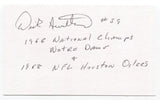 #59
1966 National Champs
Notre Dame
1968 NFL Houston Oilers